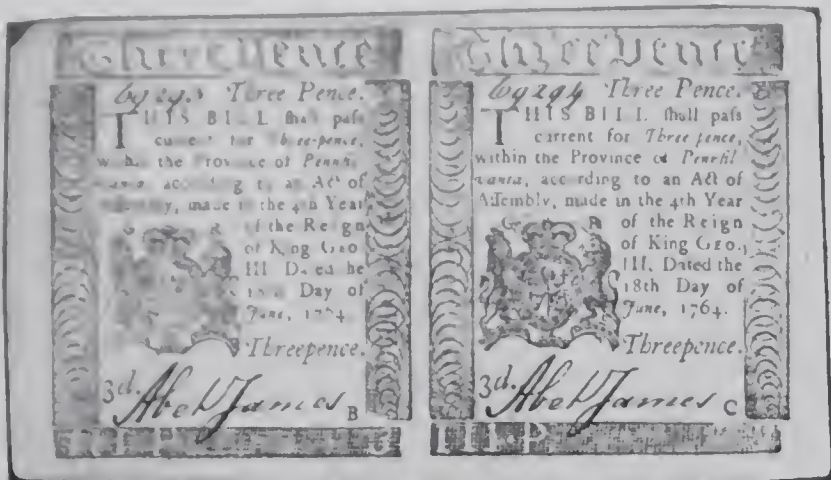 ThreePence
69293 Three Pence.
THIS BILL ſhall paſs
current for Three-pence,
within the Province of Pennſil
vania, according to an Act of
Aſſembly, made in the 4th Year
of the Reign
of King GEO.
III. Dated the
18th Day of
June, 1764.
Threepence.
3d. Abel James B
ThreePence
69294 Three Pence.
THIS BILL ſhall paſs
current for Three pence,
within the Province of Penſil
vania, according to an Act of
Aſſembly, made in the 4th Year
G R
of the Reign
of King GEO.
III. Dated the
18th Day of
June, 1764.
Threepence.
3d. Abel James C